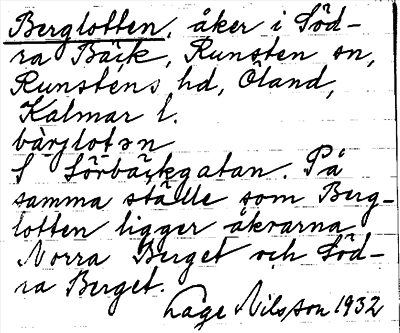 Berglotten, åker i Söd-
ra Bäck, Runsten sn,
Runstens hd, Öland,
Kalmar l.
bàrjlotən
f Sörbäckgatan. På
samma ställe som Berg-
lotten ligger åkrarna
Norra Berget och Söd-
ra Berget.
Lage Nilsson 1932